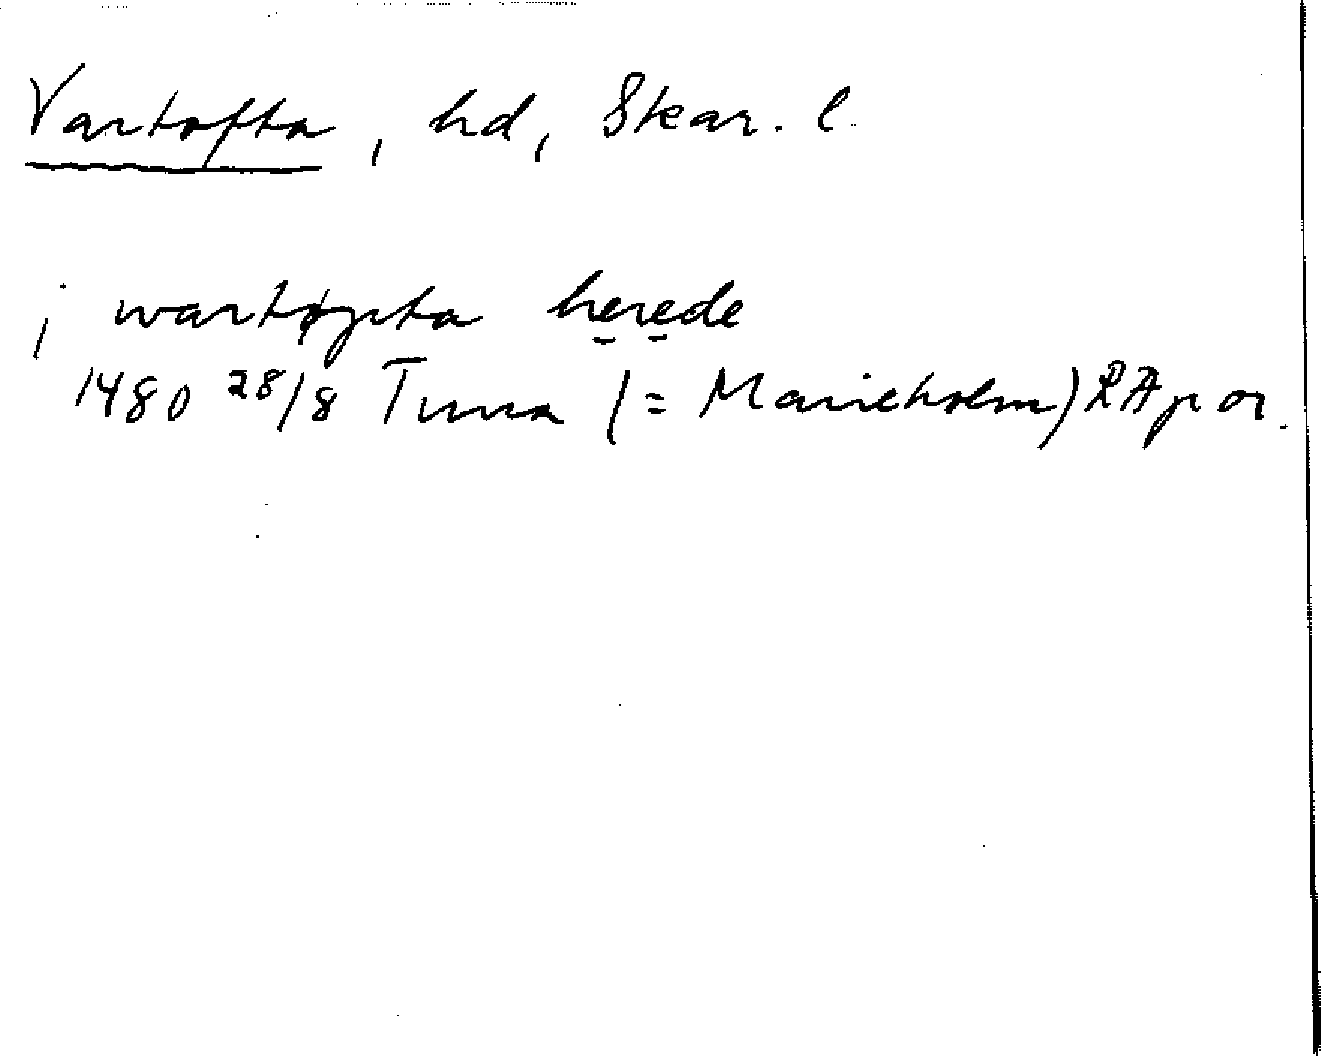 Vartofta, hd, Skar. l.
j wartøpta herede
1480 28/8 Tuna (= Marieholm) RAp or.